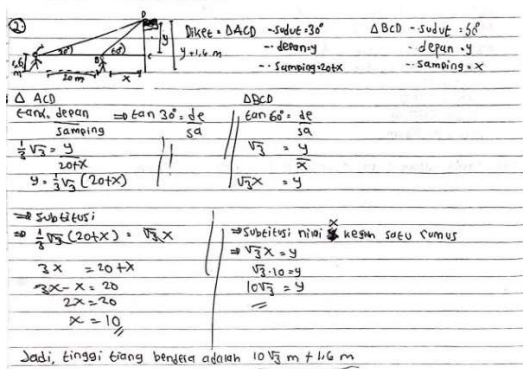 2.
D
y
C
30°
60°
B
1,6 m
20 m
x
y + 1,6 m
Diket = ΔACD - sudut = 30°
-- depan = y
-- samping = 20+x
ΔBCD - sudut = 60°
- depan = y
-- samping = x
Δ ACD
tan α = depan / samping ⇒ tan 30° = de / sa
1/3 √3 = y / 20+x
y = 1/3 √3 (20+x)
ΔBCD
tan 60° = de / sa
√3 = y / x
√3 x = y
⇒ Subtitusi
⇒ 1/3 √3 (20+x) = √3 x
3x = 20+x
3x-x = 20
2x = 20
x = 10
⇒ Subtitusi nilai x kesalah satu rumus
⇒ √3 x = y
√3 · 10 = y
10√3 = y
Jadi, tinggi tiang bendera adalah 10√3 m + 1,6 m